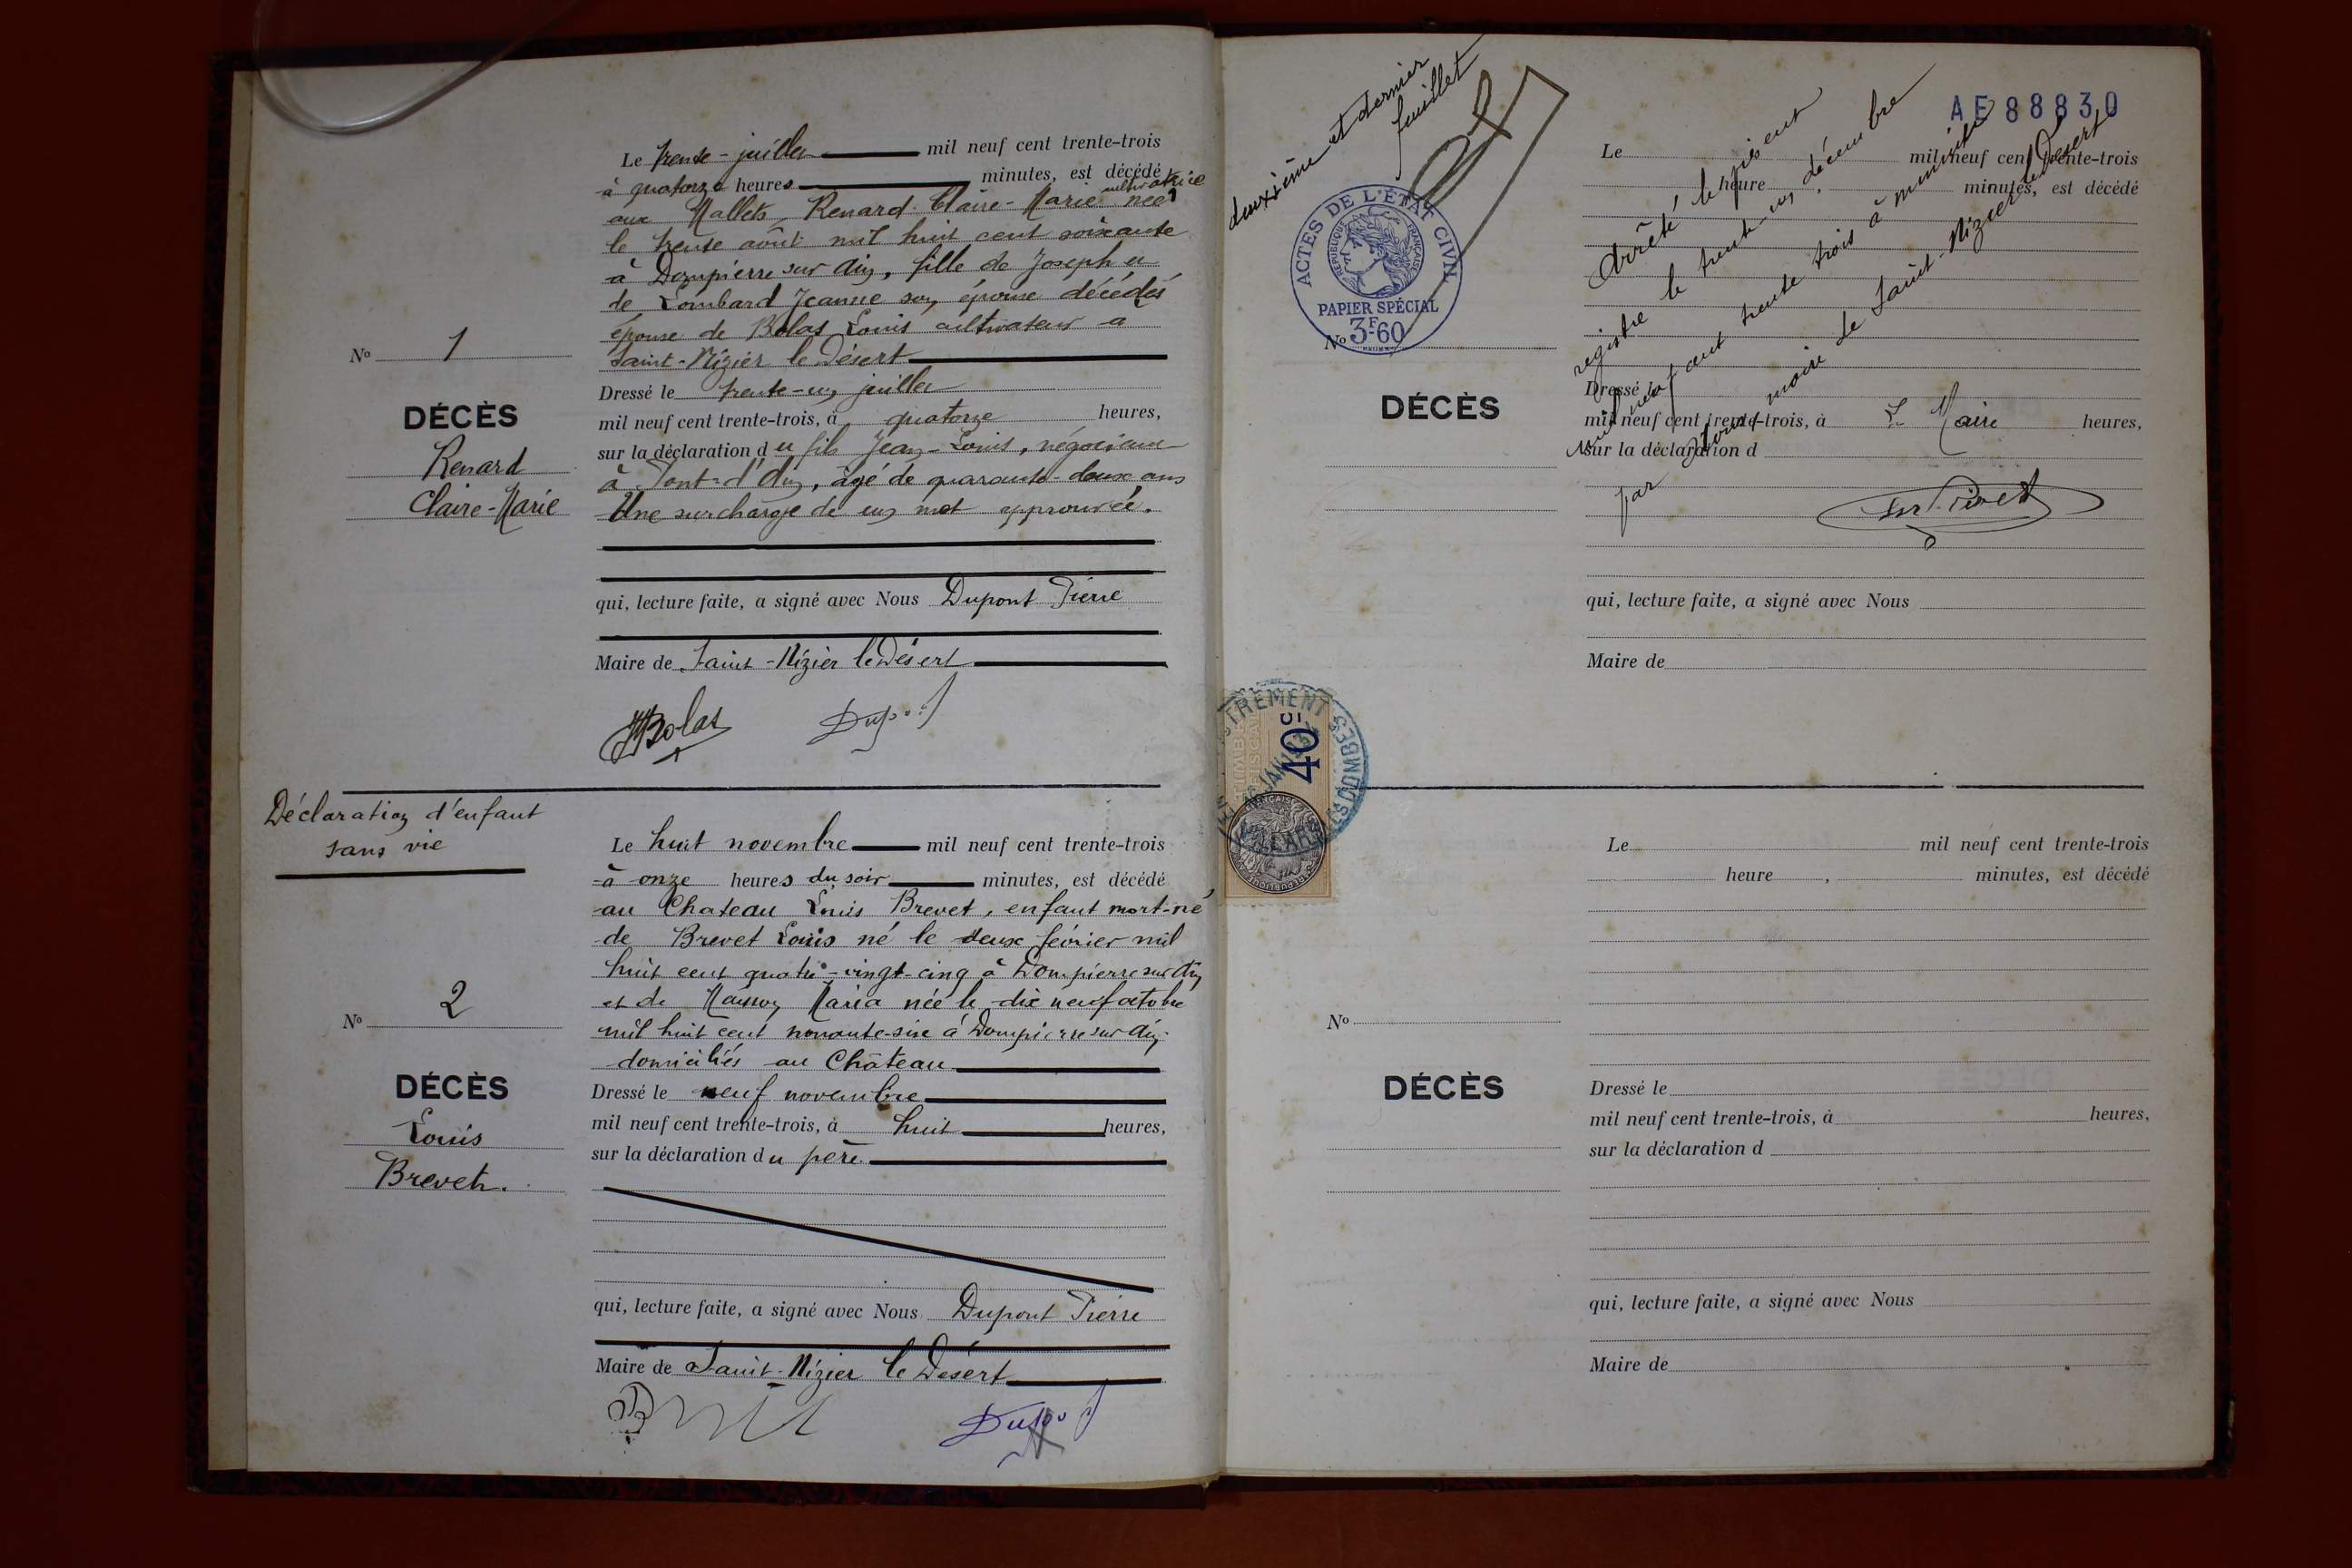 Le trente-juillet mil neuf cent trente-trois
à quatorze heures minutes, est décédé
cultivatrice
aux Mallets, Renard Claire-Marie née
le trente août mil huit cent soixante
à Dompierre sur Ain, fille de Joseph et
de Lombard Jeanne son épouse décédés
épouse de Bolas Louis cultivateur à
Saint-Nizier le Désert
Nº 1
DÉCÈS
Renard
Claire-Marie
Dressé le trente-un juillet
mil neuf cent trente-trois, à quatorze heures,
sur la déclaration du fils Jean-Louis, négociant
à Pont-d'Ain, âgé de quarante-deux ans
Une surcharge de un mot approuvée.
qui, lecture faite, a signé avec Nous Dupont Pierre
Maire de Saint-Nizier le Désert
JBolas Dupont
Déclaration d'enfant
sans vie
Le huit novembre mil neuf cent trente-trois
à onze heures du soir minutes, est décédé
au Chateau Louis Brevet, enfant mort-né
de Brevet Louis né le deux février mil
huit cent quatre-vingt-cinq à Dompierre sur Ain
et de Maria née le dix neuf octobre
mil huit cent nonante-six à Dompierre sur Ain
domiciliés au Château
Nº 2
DÉCÈS
Louis
Brevet.
Dressé le neuf novembre
mil neuf cent trente-trois, à huit heures,
sur la déclaration du père
qui, lecture faite, a signé avec Nous Dupont Pierre
Maire de Saint-Nizier le Désert
Dupont
deuxième et dernier
feuillet
ACTES DE L'ÉTAT CIVIL
RÉPUBLIQUE FRANÇAISE
PAPIER SPÉCIAL
3F60
AE 88830
Le mil neuf cent trente-trois
heure minutes, est décédé
Arrêté le présent
registre le trente-un décembre
mil neuf cent trente trois à minuit
par nous maire de Saint-Nizier le Désert
Nº
DÉCÈS
Dressé le
mil neuf cent trente-trois, à heures,
sur la déclaration d
Le Maire
qui, lecture faite, a signé avec Nous
Maire de
TIMBRE
FISCAL
40c
Le mil neuf cent trente-trois
heure , minutes, est décédé
Nº
DÉCÈS
Dressé le
mil neuf cent trente-trois, à heures,
sur la déclaration d
qui, lecture faite, a signé avec Nous
Maire de